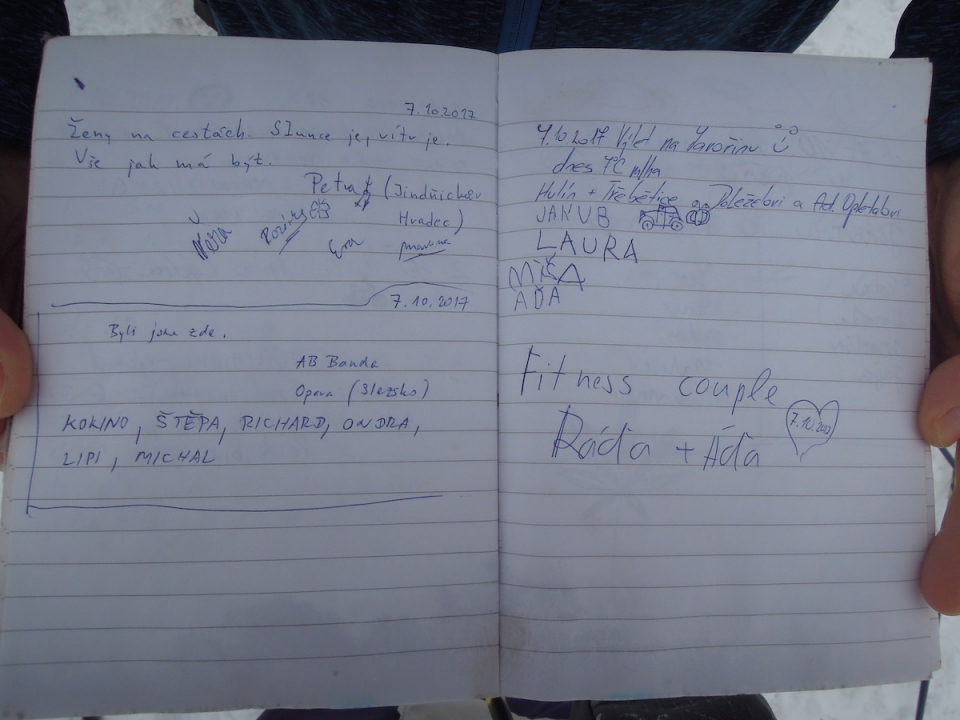 7.10.2017
Ženy na cestách. Slunce je, vítr je.
Vše jak má být.
Petra (Jindřichův
Hradec)
Eva
7.10.2017
Byli jsme zde.
AB Banda
Opava (Slezsko)
KOKINO, ŠTĚPA, RICHARD, ONDRA,
LIPI, MICHAL
7.10.2017 Výlet na Javořinu
dnes 7°C mlha
Hulín + Třebětice Doležalovi a Ad. Opletalovi
JAKUB
LAURA
MÍŠA
AĎA
Fitness couple
Ráďa + Áďa
7.10.2017